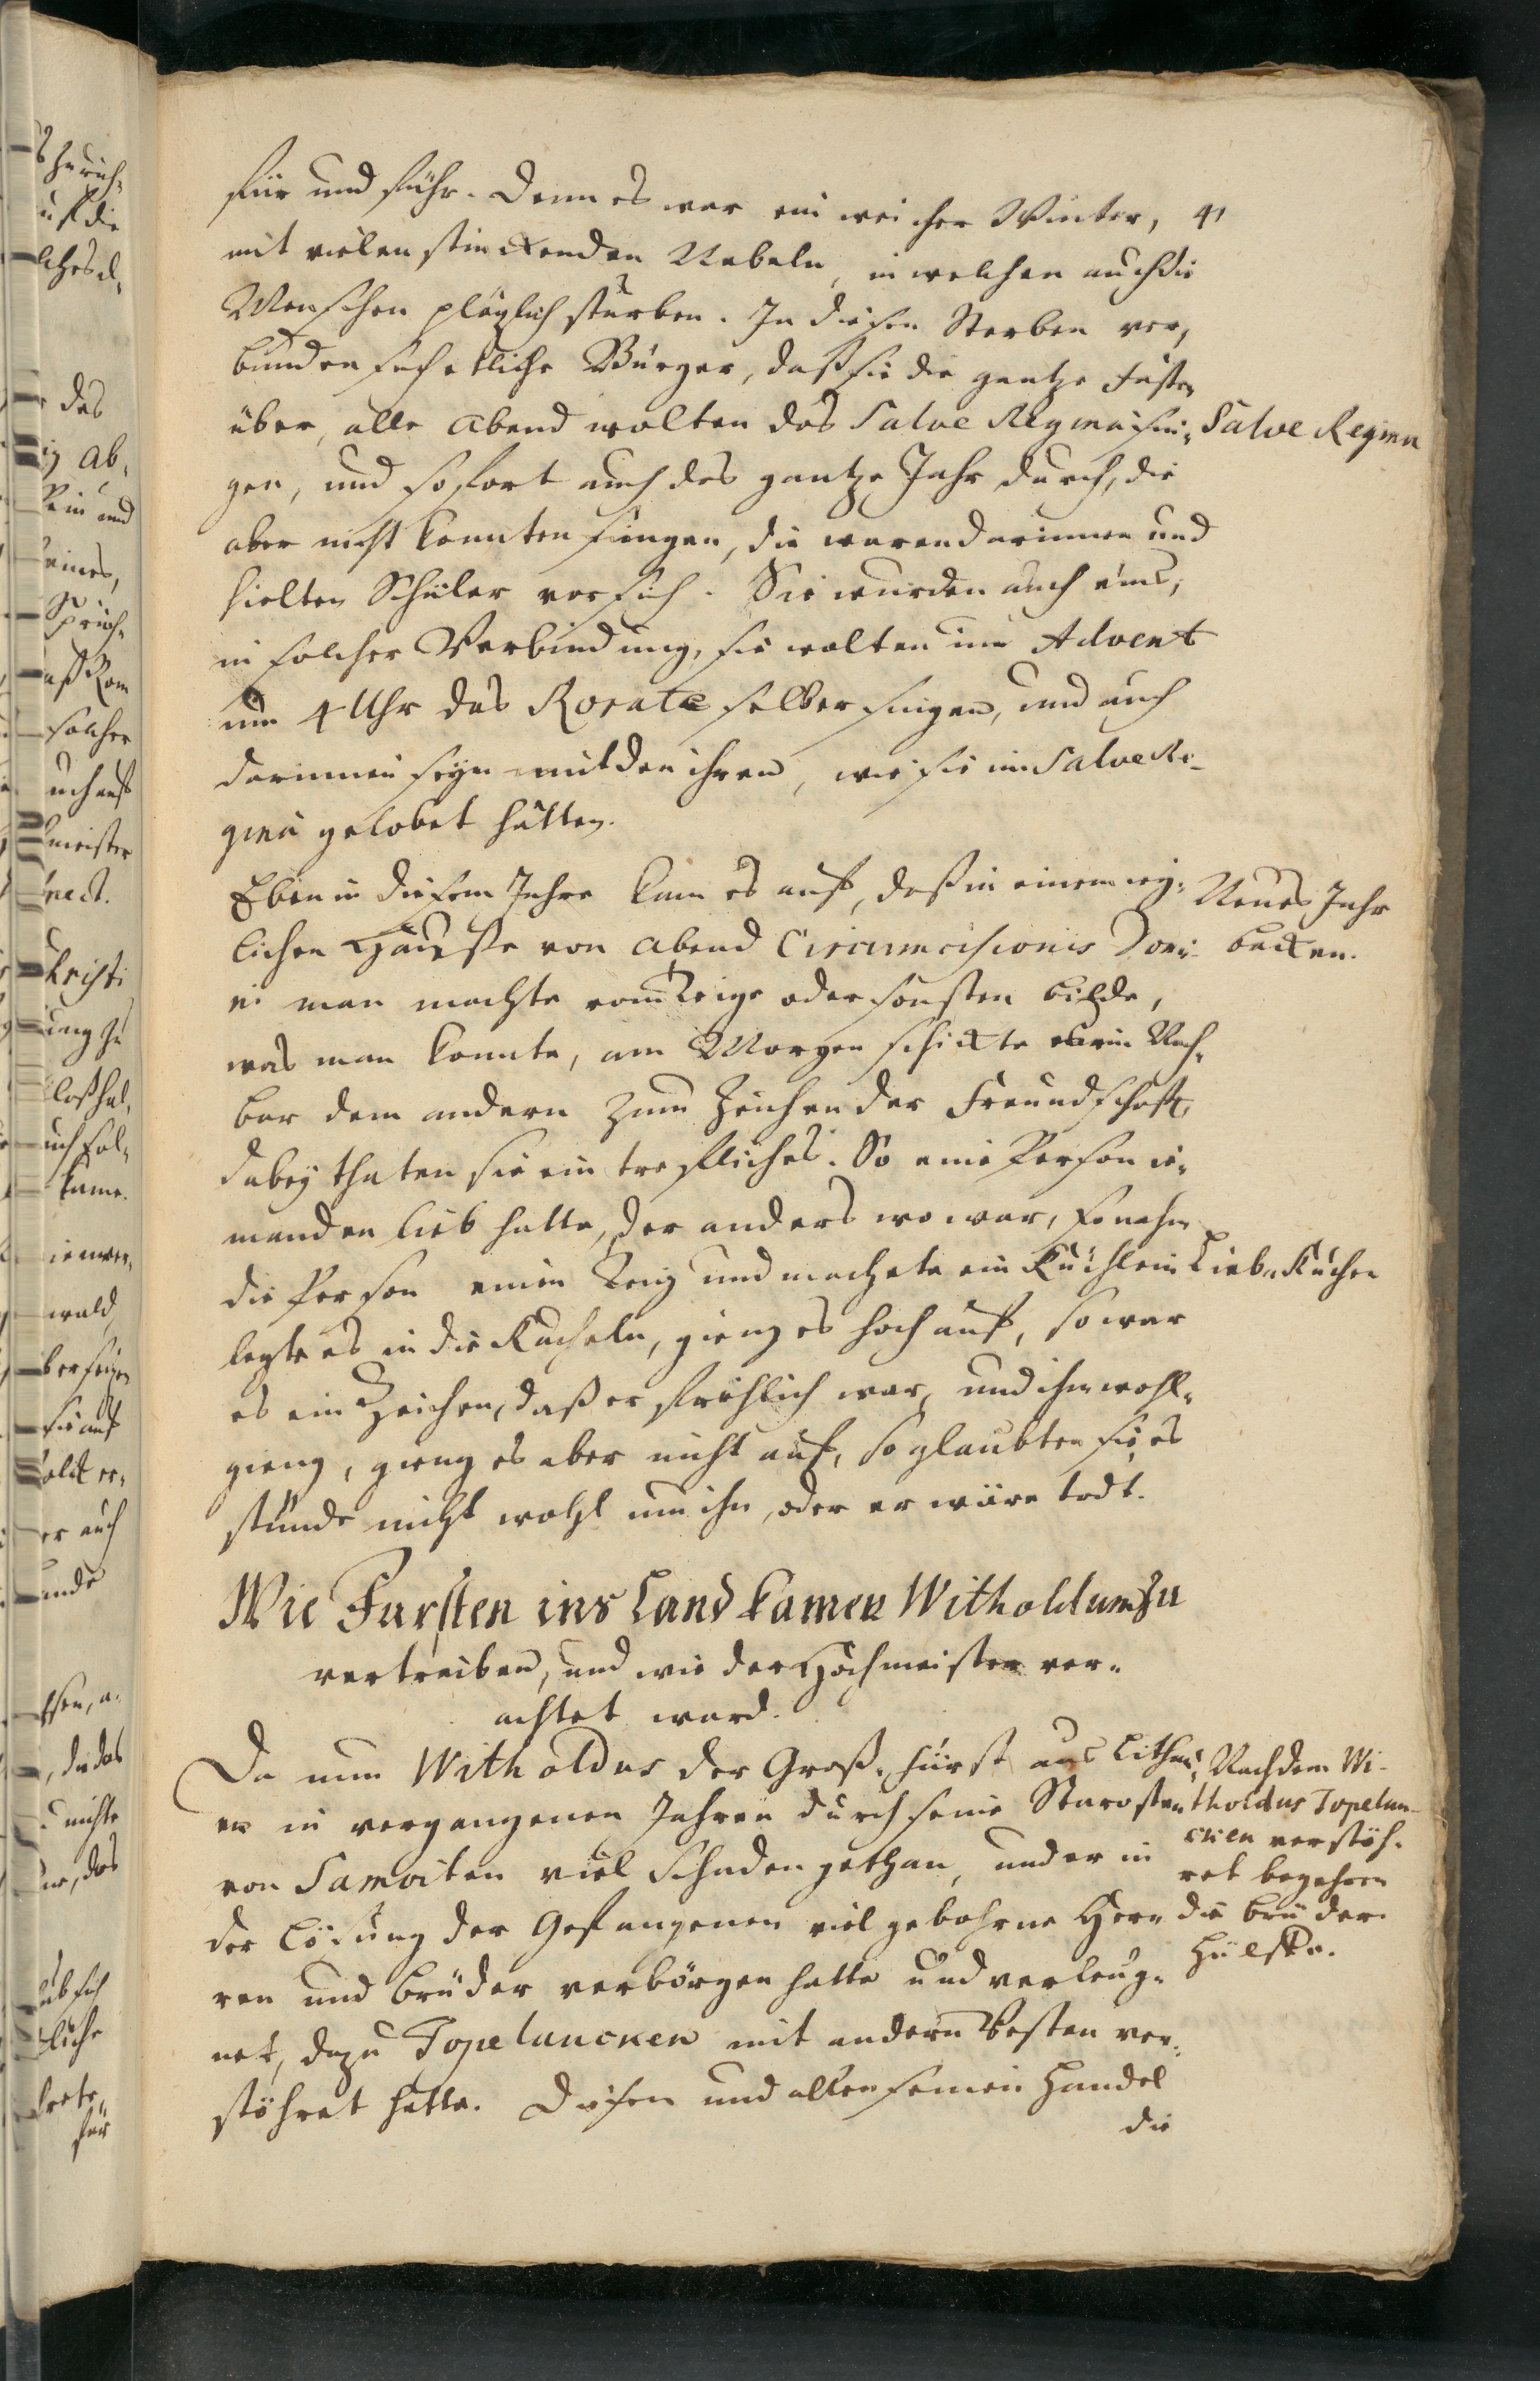 für und führ. Denn es war ein weicher Winter, 41
mit vielen stinckenden Nebeln, in welchen auch die
Menschen plözlich sturben. In diesen Sterben ver,
bunden sich etliche Bürger, daß sie die gantze Fasten
über, alle Abend wolten das Salve Regina sin- Salve Regina
gen, und sofort auch das gantze Jahr durch, die
aber nicht konnten singen, die waren darinnen und
hielten Schüler vor sich. Sie wurden auch eins,
in solcher Verbindung, sie wolten im Advent
um 4 Uhr das Rorate selber singen, und auch
darinnen seyn mit den ihren, wie sie im Salve Re-
gina gelobet hätten.
Eben in diesem Jahre kam es auf, daß in einem ieg- Neues Jahr
lichen Hauße von Abend Circumcisionis Domi- backen.
ni man machte vom Teige oder sonsten bilde,
was man konnte, am Morgen schickte ein Nach-
bar dem andern zum Zeichen der Freundschaft,
dabey thaten sie ein trefliches. So eine Person ie-
manden lieb hatte, der anders wo war, so nahm
die Person einen Teig und machete ein Küchlein Lieb-Kuchen
legte es in die Kacheln, gieng es hoch auf, so war
es ein Zeichen, daß er frohlich war, und ihm wohl-
gieng, gieng es aber nicht auf, so glaubten sie, es
stünde nicht wohl um ihn, oder er wäre todt.
Wie Fursten ins Land kamen Witholdum zu
vertreiben, und wie der Hochmeister ver-
achtet ward.
Da nun Witholdus der Groß-fürst aus Lithau- Nachdem Wi-
en in vergangenen Jahren durch seine Starosten tholdus Topelun-
von Samoiten viel Schaden gethan, und er in cken verstöh-
ret begehren
der Lösung der Gefangenen viel gebohrne Her- die brüder
ren und brüder verborgen hatte und verleug- Hülffe.
net, dazu Topeluncken mit andern Vesten ver-
stöhret hatte. Diesen und allen seinen Handel
die